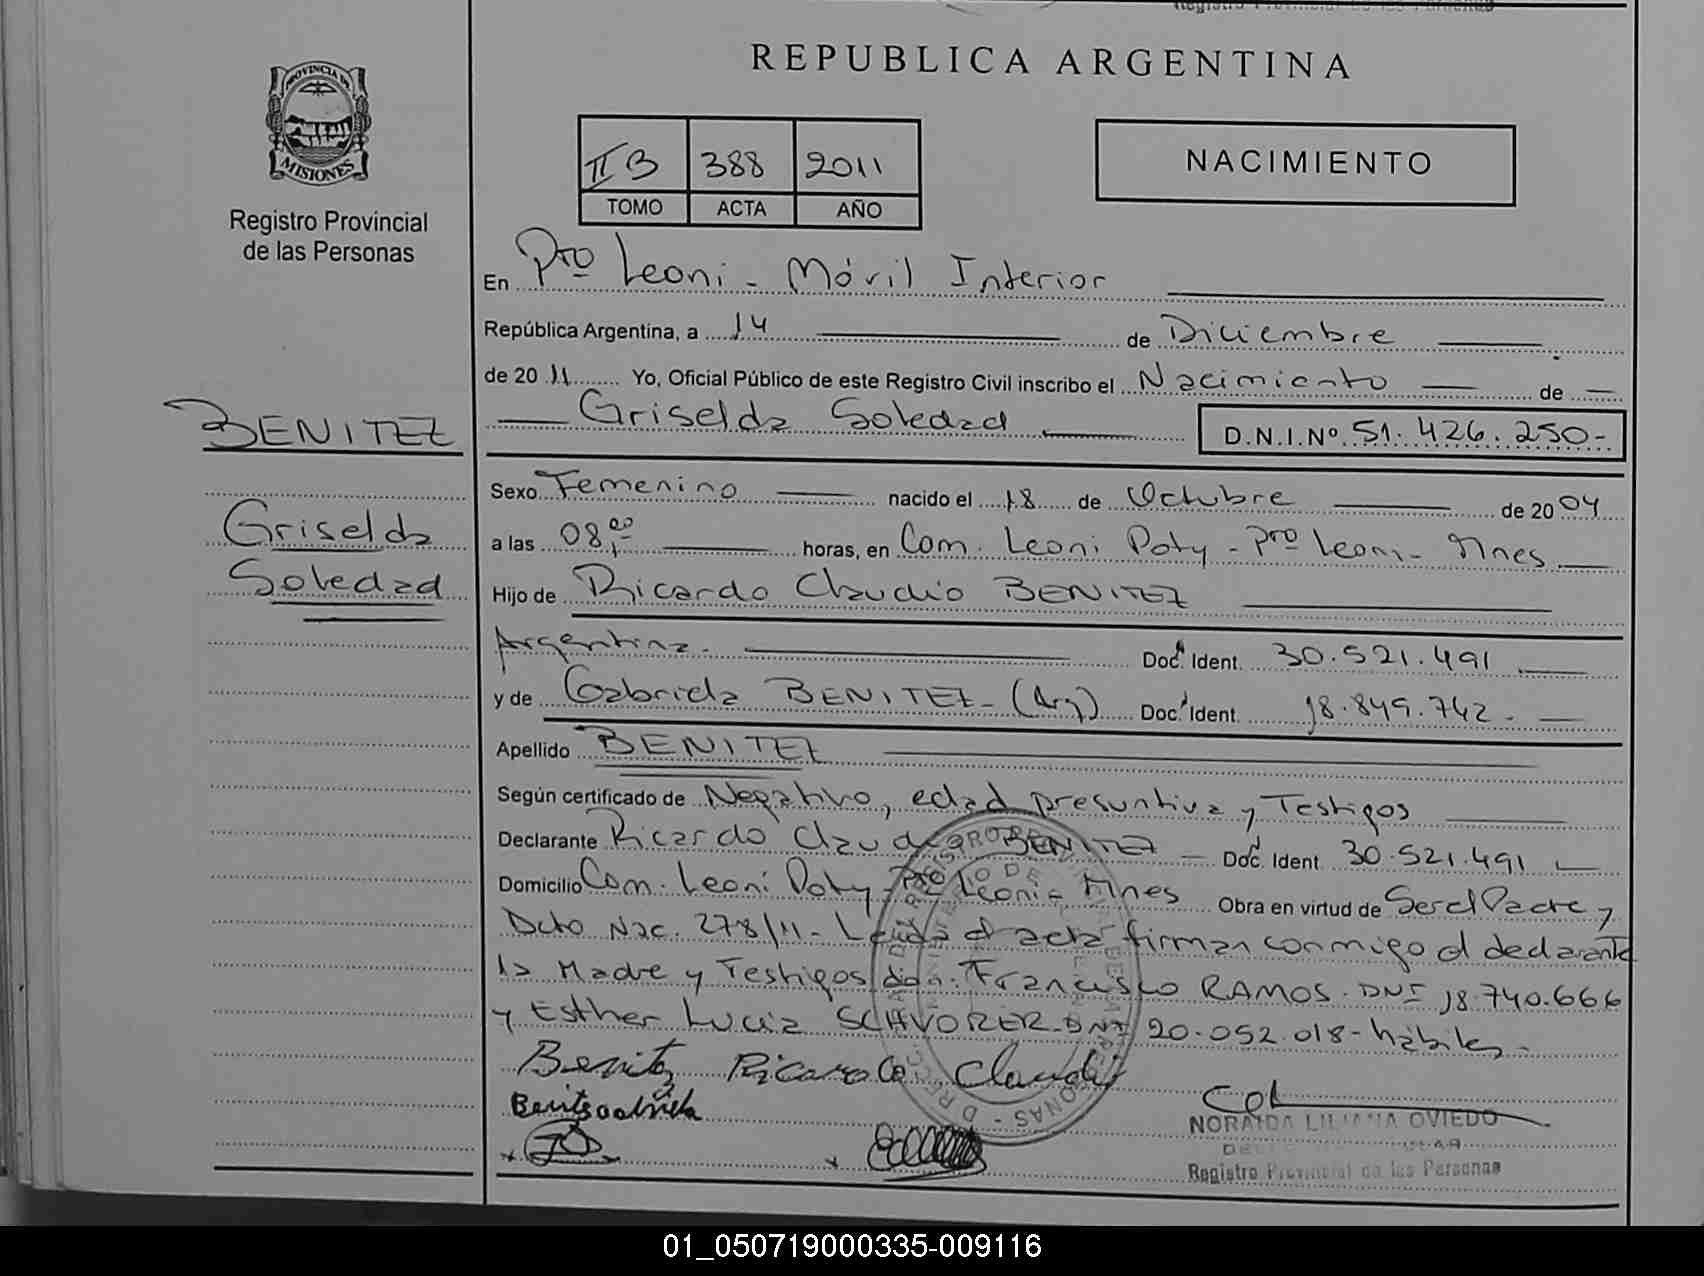 REPUBLICA ARGENTINA
PROVINCIA DE
MISIONES
Registro Provincial
de las Personas
II B 388 2011
TOMO ACTA AÑO
NACIMIENTO
En Pto Leoni - Móvil Interior
República Argentina, a 14 de Diciembre
de 20 11 Yo, Oficial Público de este Registro Civil inscribo el Nacimiento de
Griselda Soledad D.N.I.Nº 51.426.250-
BENITEZ
Griselda
Soledad
Sexo Femenino nacido el 18 de Octubre de 20 04
a las 08,00 horas, en Com. Leoni Poty - Pto Leoni - Mnes
Hijo de Ricardo Claudio BENITEZ
Argentina. Doc. Ident. 30.521.491
y de Gabriela BENITEZ - (Arg) Doc. Ident. 18.849.742 -
Apellido BENITEZ
Según certificado de Negativo, edad presuntiva y Testigos
Declarante Ricardo Claudio BENITEZ - Doc. Ident. 30.521.491
Domicilio Com. Leoni Poty - Pto Leoni - Mnes Obra en virtud de Ser el Padre y
Dcto Nac. 278/11 - Leída el acta firman conmigo el declarante
la Madre y Testigos don: Francisco RAMOS. DNI 18.740.666
y Esther Lucia SCHVORER - DNI 20.052.018 - hábiles -
Benitez Ricardo Claudio
NORAIDA LILIANA OVIEDO
Registro Provincial de las Personas
01_050719000335-009116